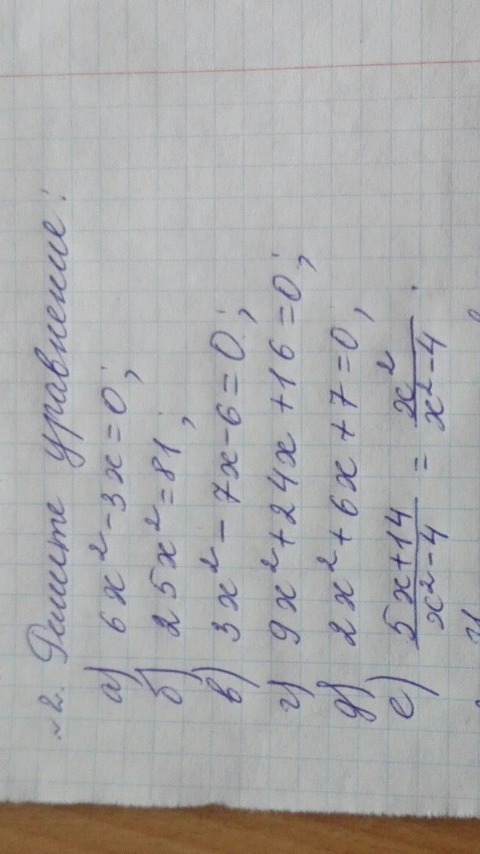 №2. Решите уравнение:
а) 6x² - 3x = 0;
б) 25x² = 81;
в) 3x² - 7x - 6 = 0;
г) 9x² + 24x + 16 = 0;
д) 2x² + 6x + 7 = 0;
е) (5x + 14)/(x² - 4) = x²/(x² - 4).